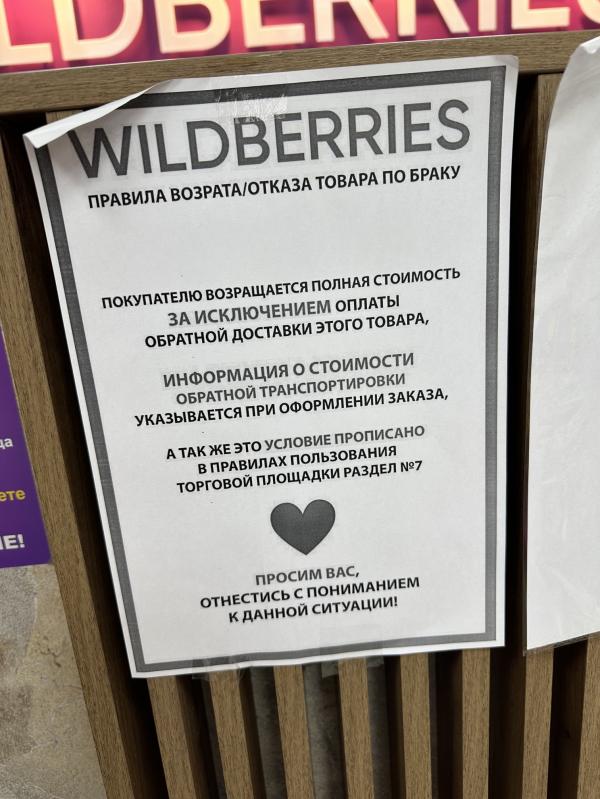 LDBERRIES
WILDBERRIES
ПРАВИЛА ВОЗРАТА/ОТКАЗА ТОВАРА ПО БРАКУ
ПОКУПАТЕЛЮ ВОЗРАЩАЕТСЯ ПОЛНАЯ СТОИМОСТЬ
ЗА ИСКЛЮЧЕНИЕМ ОПЛАТЫ
ОБРАТНОЙ ДОСТАВКИ ЭТОГО ТОВАРА,
ИНФОРМАЦИЯ О СТОИМОСТИ
ОБРАТНОЙ ТРАНСПОРТИРОВКИ
УКАЗЫВАЕТСЯ ПРИ ОФОРМЛЕНИИ ЗАКАЗА,
А ТАК ЖЕ ЭТО УСЛОВИЕ ПРОПИСАНО
В ПРАВИЛАХ ПОЛЬЗОВАНИЯ
ТОРГОВОЙ ПЛОЩАДКИ РАЗДЕЛ №7
ПРОСИМ ВАС,
ОТНЕСТИСЬ С ПОНИМАНИЕМ
К ДАННОЙ СИТУАЦИИ!